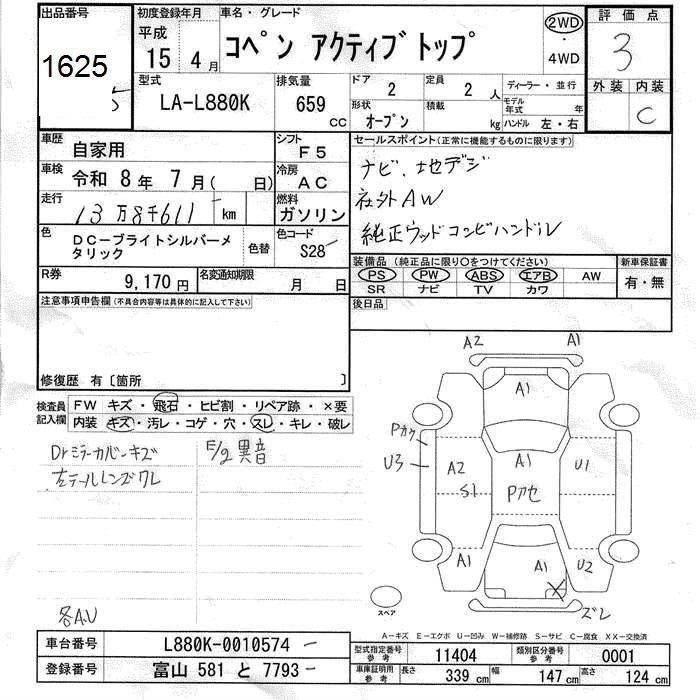 出品番号
1625
5
初度登録年月
平成
15 年 4 月
車名・グレード
コペン アクティブトップ
2WD
・
4WD
評価点
3
外装 内装
C
型式
LA-L880K
排気量
659 CC
ドア 2
定員 2 人
形状 オープン
積載 kg
ディーラー・並行
モデル年式 年
ハンドル 左・右
車歴 自家用
シフト F5
車検 令和 8年 7月( 日)
冷房 AC
走行 13万8千611 km
燃料 ガソリン
色 DC-ブライトシルバーメタリック
色替
色コード S28
R券 9,170円
名変通知期限 月 日
セールスポイント(正常に機能するものに限ります)
ナビ、地デジ
社外AW
純正ウッドコンビハンドル
装備品 (純正品に限り○をつけてください)
PS PW ABS エアB AW
SR ナビ TV カワ
新車保証書
有・無
後日品
注意事項申告欄(不具合内容等は具体的に記入して下さい)
修復歴 有〔箇所 〕
検査員記入欄
FW キズ・飛石・ヒビ割・リペア跡・×要
内装 キズ・汚レ・コゲ・穴・スレ・キレ・破レ
Drミラーカバーキズ
左テールレンズワレ
E/g異音
各A.U
A2 A1
A1
Pカケ
U3
A2 A1 U1
S1 Pカセ
A1 A1 U2
X
ズレ
スペア
A-キズ E-エクボ U-凹み W-補修跡 S-サビ C-腐食 XX-交換済
車台番号 L880K-0010574
登録番号 富山 581 と 7793
型式指定番号 参考 11404
類別区分番号 参考 0001
車庫証明用 参考 長さ 339 cm 幅 147 cm 高さ 124 cm